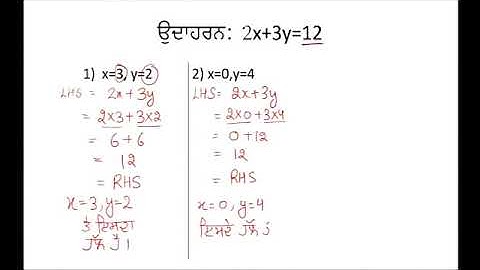 ਉਦਾਹਰਨ: 2x+3y=12
1) x=3, y=2
LHS = 2x+3y
= 2×3+3×2
= 6+6
= 12
= RHS
x=3, y=2
ਇਸਦਾ
ਹੱਲ ਹੈ।
2) x=0,y=4
LHS = 2x+3y
= 2×0+3×4
= 0+12
= 12
= RHS
x=0, y=4
ਇਸਦੇ ਹੱਲ